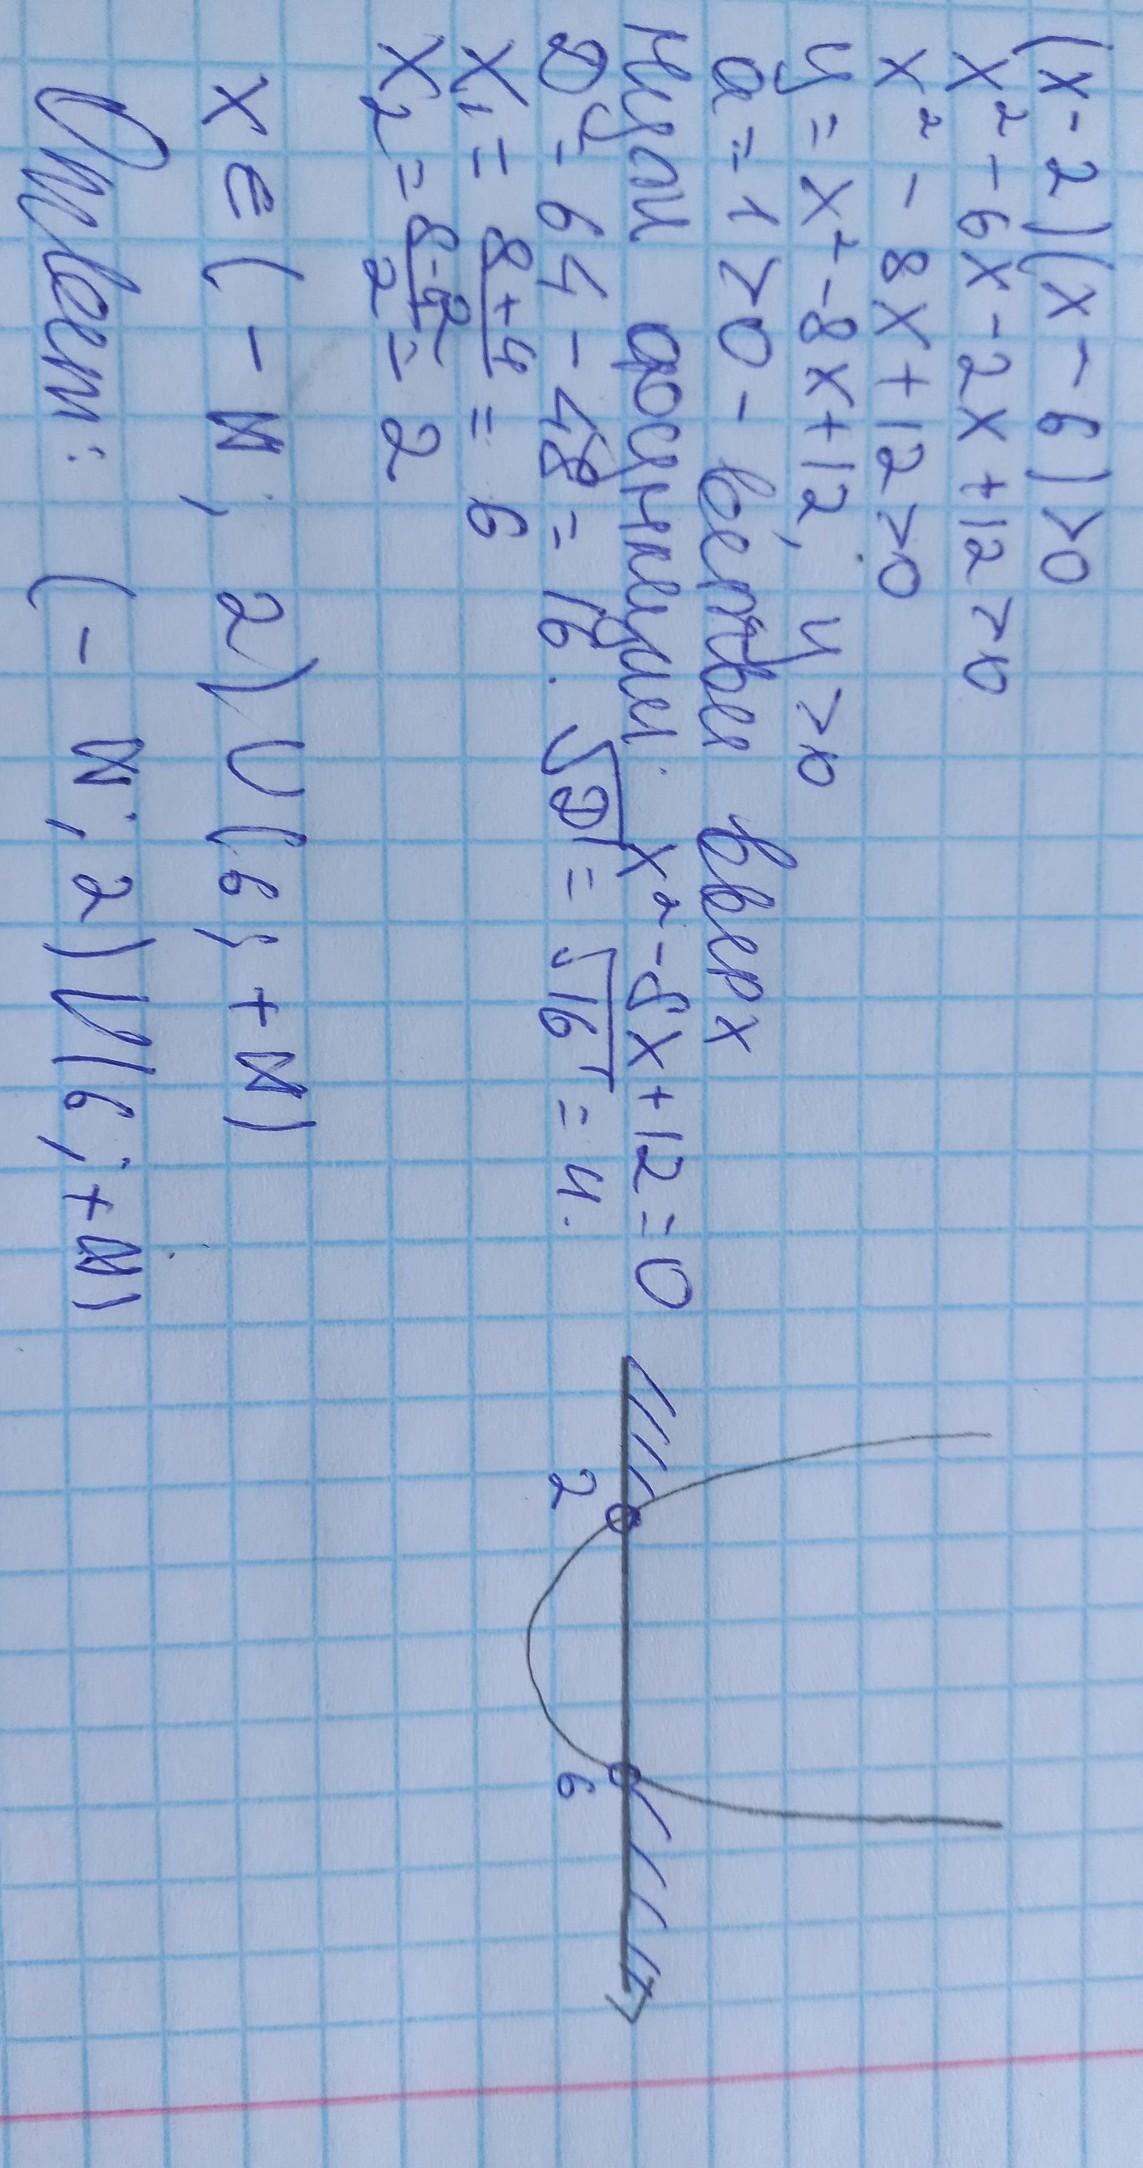 (x-2)(x-6)>0
x²-6x-2x+12>0
x²-8x+12>0
y=x²-8x+12, y>0
a=1>0 - ветви вверх
Нули функции: x²-8x+12=0
D=64-48=16. √D=√16=4.
x₁=(8+4)/2=6
x₂=(8-4)/2=2
2 6
x∈(-∞; 2)∪(6; +∞)
Ответ: (-∞; 2)∪(6; +∞)